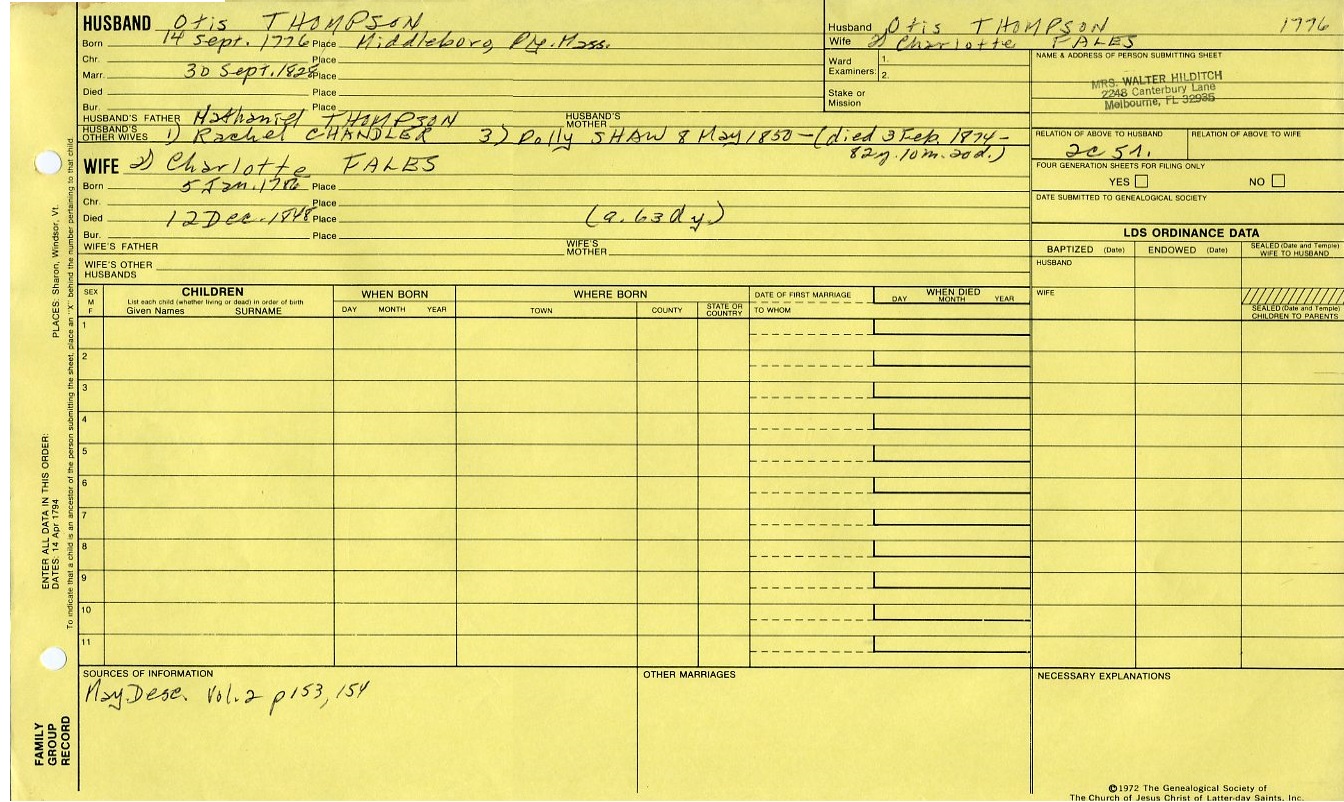 HUSBAND Otis THOMPSON
Born 14 Sept. 1776 Place Middleboro, Ply. Mass.
Chr. Place
Marr. 30 Sept. 1828 Place
Died Place
Bur. Place
HUSBAND'S FATHER Nathaniel THOMPSON HUSBAND'S MOTHER
HUSBAND'S OTHER WIVES 1) Rachel CHANDLER 3) Polly SHAW 8 May 1850 – (died 3 Feb. 1874 –
82y. 10m. 20d.)
WIFE 2) Charlotte FALES
Born 5 Jan. 1786 Place
Chr. Place
Died 12 Dec. 1848 Place (a. 63dy)
Bur. Place
WIFE'S FATHER WIFE'S MOTHER
WIFE'S OTHER HUSBANDS
Husband Otis THOMPSON 1776
Wife 2) Charlotte FALES
Ward Examiners: 1.
2.
Stake or Mission
NAME & ADDRESS OF PERSON SUBMITTING SHEET
MRS. WALTER HILDITCH
2248 Canterbury Lane
Melbourne, FL 32935
RELATION OF ABOVE TO HUSBAND RELATION OF ABOVE TO WIFE
2c 5r.
FOUR GENERATION SHEETS FOR FILING ONLY
YES NO
DATE SUBMITTED TO GENEALOGICAL SOCIETY
LDS ORDINANCE DATA
BAPTIZED (Date) ENDOWED (Date) SEALED (Date and Temple) WIFE TO HUSBAND
HUSBAND
WIFE
SEALED (Date and Temple) CHILDREN TO PARENTS
SEX M F
CHILDREN
List each child (whether living or dead) in order of birth
Given Names SURNAME
WHEN BORN
DAY MONTH YEAR
WHERE BORN
TOWN COUNTY STATE OR COUNTRY
DATE OF FIRST MARRIAGE
TO WHOM
WHEN DIED
DAY MONTH YEAR
1
2
3
4
5
6
7
8
9
10
11
SOURCES OF INFORMATION
May. Desc. Vol. 2 p 153, 154
OTHER MARRIAGES
NECESSARY EXPLANATIONS
©1972 The Genealogical Society of
The Church of Jesus Christ of Latter-day Saints, Inc.
PLACES: Sharon, Windsor, Vt.
ENTER ALL DATA IN THIS ORDER:
DATES: 14 Apr 1794
To indicate that a child is an ancestor of the person submitting the sheet, place an "X" behind the number pertaining to that child.
FAMILY
GROUP
RECORD